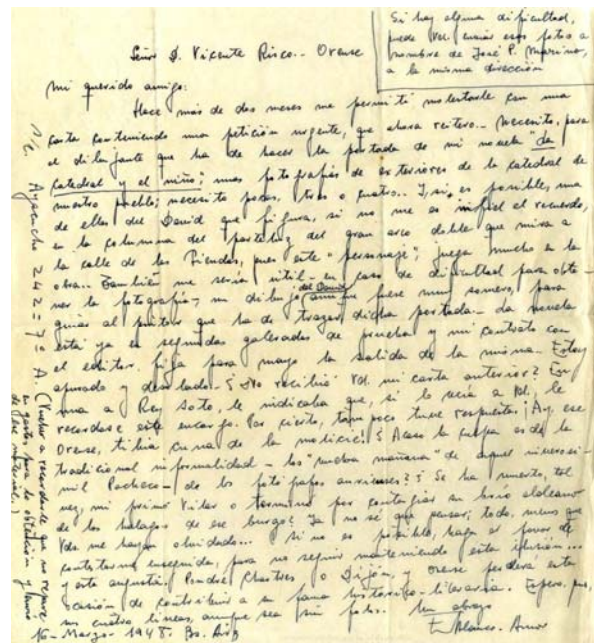 Si hay alguna dificultad,
puede Vd. enviar esas fotos a
nombre de José P. Mariño,
a la misma dirección
Señor D. Vicente Risco.- Orense
Mi querido amigo:
Hace más de dos meses me permití molestarle con una
carta conteniendo una petición urgente, que ahora reitero.- Necesito, para
el dibujante que ha de hacer la portada de mi novela "La
catedral y el niño", unas fotografías de exteriores de la catedral de
nuestro pueblo; necesito pocas, tres o cuatro.. Y, si es posible, una
de ellas del David que figura, si no me es infiel el recuerdo,
en la columna del parteluz del gran arco doble que mira a
la calle de las Tiendas, pues este "personaje", juega mucho en la
obra.. También me sería útil - en caso de dificultad para obte-
ner la fotografía - un dibujo del David aunque fuese muy somero, para
guiar al pintor que ha de trazar dicha portada.- La novela
está ya en segundas galeradas de prueba y mi contrato con
el editor fija para mayo la salida de la misma.- Estoy
apurado y desolado.- ¿No recibió Vd. mi carta anterior? En
una a Rey Soto, le indicaba que, si le veía a Vd., le
recordase este encargo. Por cierto, tampoco tuve respuesta. ¡Ay, ese
Orense, tibia cuna de la molicie! ¿Acaso la culpa es de la
tradicional informalidad - los "vuelva mañana" de aquel
Pacheco - de los fotógrafos aurienses? ¿Se ha muerto, tal
vez, mi primo Villar o terminó por contagiar su brío aldeano
de los halagos de ese burgo? Ya no sé que pensar; todo, menos que
Vds. me hayan olvidado... Si no es posible, haga el favor de
contestarme enseguida, para no seguir manteniendo esta ilusión...
y esta angustia. Pondré Chartres o Dijón, y Orense perderá esta
ocasión de contribuir a su fama histórico-literaria. Espero, pues,
sus cuatro líneas, aunque sea sin fotos. Un abrazo
E. Blanco-Amor
16-Marzo-1948. Bs. Airs
s/c. Ayacucho 242=7º A. (Vuelvo a recordarle que no repare
en gastos para la obtención y envío
de ese material.)